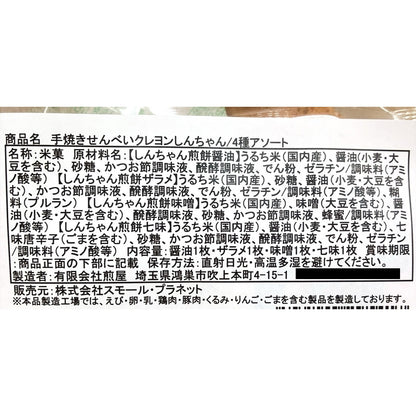 商品名 手焼きせんべいクレヨンしんちゃん/4種アソート
名称:米菓 原材料名:【しんちゃん煎餅醤油】うるち米(国内産)、醤油(小麦・大
豆を含む)、砂糖、かつお節調味液、醗酵調味液、でん粉、ゼラチン/調味料(アミ
ノ酸等) 【しんちゃん煎餅ザラメ】うるち米(国内産)、砂糖、醤油(小麦・大豆を含
む)、かつお節調味液、醗酵調味液、でん粉、ゼラチン/調味料(アミノ酸等)、糊
料(プルラン) 【しんちゃん煎餅味噌】うるち米(国内産)、味噌(大豆を含む)、醤
油(小麦・大豆を含む)、砂糖、かつお節調味液、醗酵調味液、蜂蜜/調味料(アミ
ノ酸等) 【しんちゃん煎餅七味】うるち米(国内産)、醤油(小麦・大豆を含む)、
七味唐辛子(ごまを含む)、砂糖、かつお節調味液、醗酵調味液、でん粉、ゼラチ
ン/調味料(アミノ酸等) 内容量:醤油1枚・ザラメ1枚・味噌1枚・七味1枚 賞味期限
:商品正面の下部に記載 保存方法:直射日光・高温多湿を避けてください。
製造者:有限会社煎屋 埼玉県鴻巣市吹上本町4-15-1
販売元:株式会社スモール・プラネット
※本品製造工場では、えび・卵・乳・鶏肉・豚肉・くるみ・りんご・ごまを含む製品を製造しております。